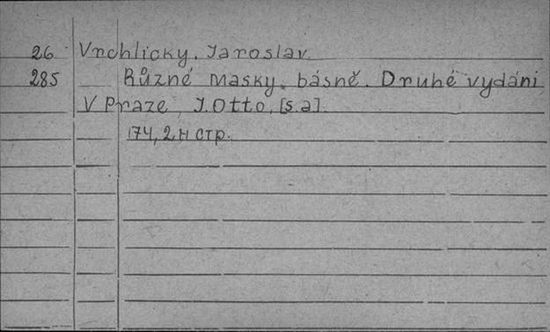 26 Vrchlický, Jaroslav.
285 Různé masky. básně. Druhé vydání
V Praze, J. Otto, [s.a].
174, 2 н стр.